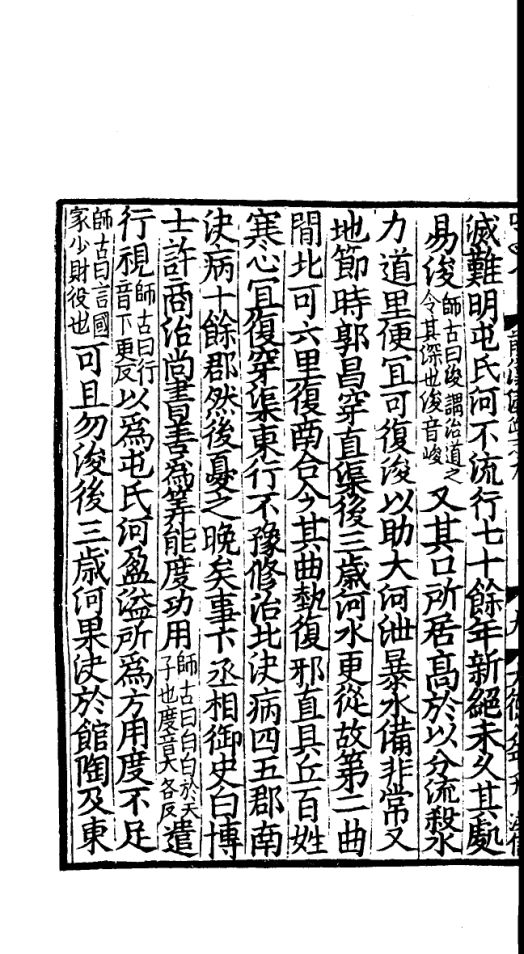 滅難明屯氏河不流行七十餘年新絕未久其處
易浚師古曰浚謂治道之令其深也浚音峻又其口所居高於以分流殺水
力道里便宜可復浚以助大河泄暴水備非常又
地節時郭昌穿直渠後三歲河水更從故第二曲
間北可六里復南合今其曲埶復邪直具丘百姓
寒心宜復穿渠東行不豫修治北決病四五郡南
決病十餘郡然後憂之晚矣事下丞相御史白博
士許商治尚書善爲筭能度功用師古曰白白於天子也度音大各反遣
行視師古曰行音下更反以爲屯氏河盈溢所爲方用度不足
師古曰言國家少財役也可且勿浚後三歲河果決於館陶及東